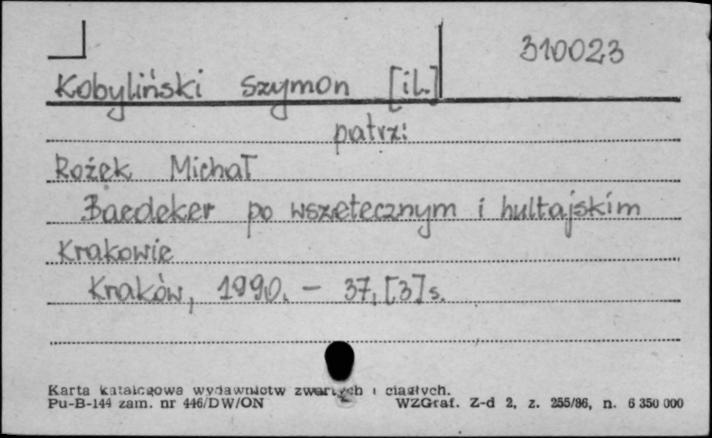 310023
Kobyliński Szymon [il.]
patrz:
Rożek Michał
Baedeker po wszetecznym i hultajskim
Krakowie
Kraków, 1990. - 37, [3] s.
Karta katalogowa wydawnictw zwartych i ciągłych.
Pu-B-144 zam. nr 446/DW/ON WZGraf. Z-d 2, z. 255/86, n. 6 350 000